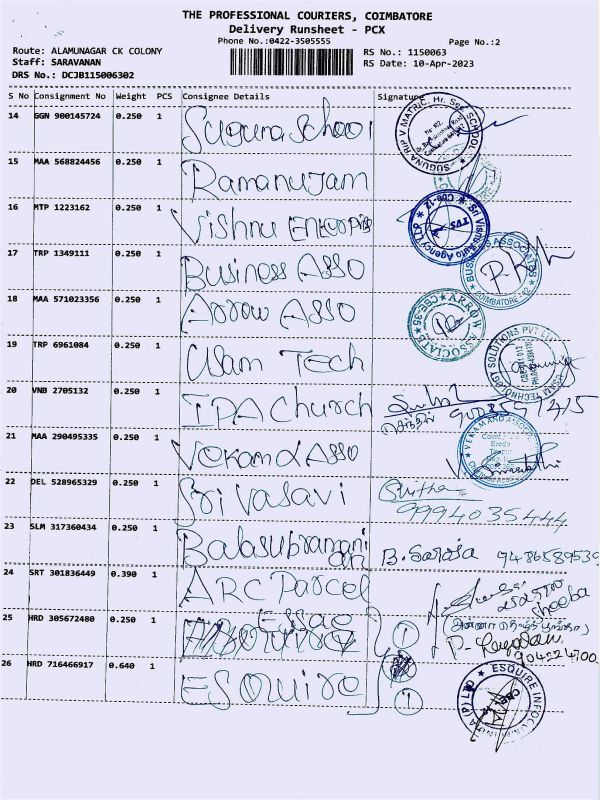 THE PROFESSIONAL COURIERS, COIMBATORE
Delivery Runsheet - PCX
Phone No.:0422-3505555 Page No.:2
Route: ALAMUNAGAR CK COLONY RS No.: 1150063
Staff: SARAVANAN RS Date: 10-Apr-2023
DRS No.: DCJB115006302
S No Consignment No Weight PCS Consignee Details Signature
14 GGN 900145724 0.250 1 Suguna School
SUGUNA RIP V MATRIC. Hr. Sec. SCHOOL
15 MAA 568824456 0.250 1 Ramanujam
16 MTP 1223162 0.250 1 Vishnu Enterprise
17 TRP 1349111 0.250 1 Business Asso
BUSINESS ASSOCIATES COIMBATORE-12
18 MAA 571023356 0.250 1 Arrow Asso
ARROW ASSOCIATES CBE-35
19 TRP 6961084 0.250 1 Tech
20 VNB 2705132 0.250 1 IPA Church
21 MAA 290495335 0.250 1 Vekand Asso
22 DEL 528965329 0.250 1 Sri Vasavi
9994035444
23 SLM 317360434 0.250 1 Balasubramani B. Saroja 9486589539
24 SRT 301836449 0.390 1 ARC Parcel
Sheeba
25 HRD 305672480 0.250 1 Essae 1
26 HRD 716466917 0.640 1 ESquire 1